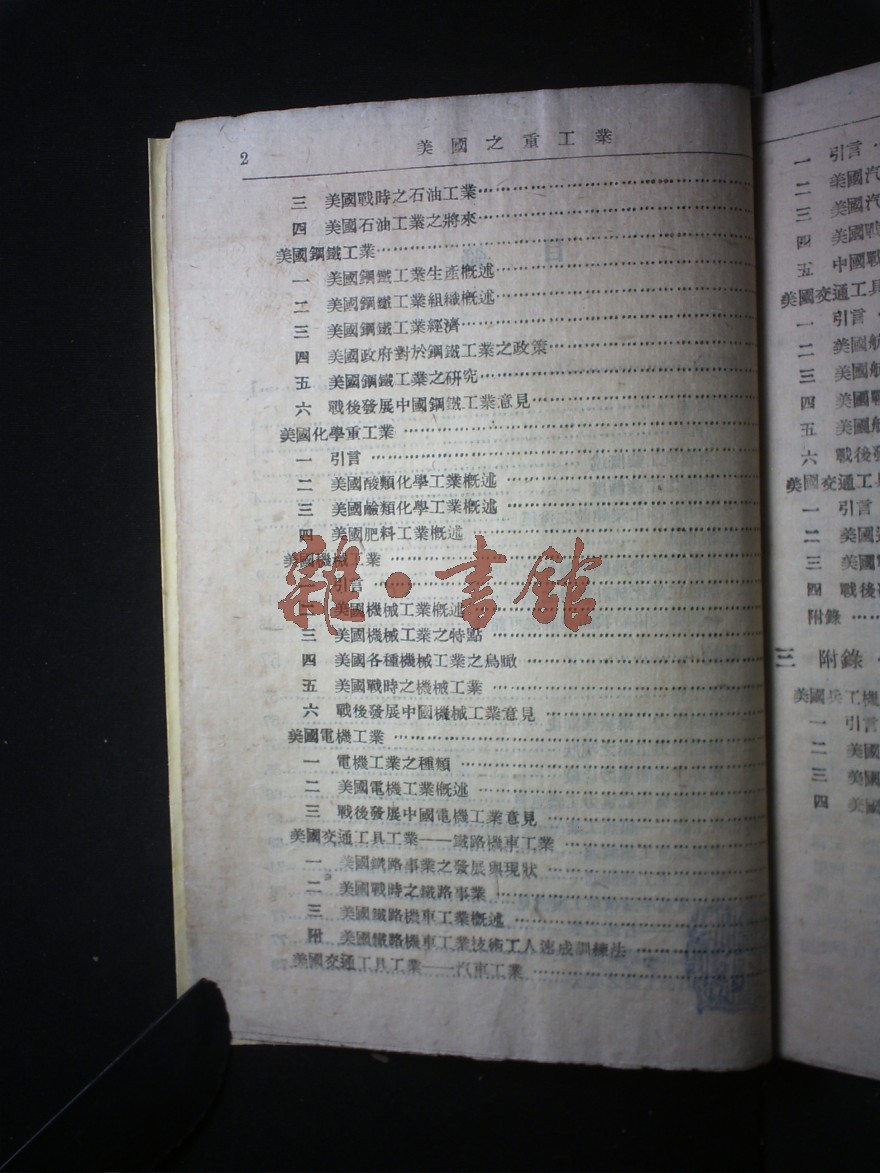 2
美國之重工業
三 美國戰時之石油工業
四 美國石油工業之將來
美國鋼鐵工業
一 美國鋼鐵工業生產概述
二 美國鋼鐵工業組織概述
三 美國鋼鐵工業經濟
四 美國政府對於鋼鐵工業之政策
五 美國鋼鐵工業之研究
六 戰後發展中國鋼鐵工業意見
美國化學重工業
一 引言
二 美國酸類化學工業概述
三 美國鹼類化學工業概述
四 美國肥料工業概述
美國機械工業
一 引言
二 美國機械工業概述
三 美國機械工業之特點
四 美國各種機械工業之鳥瞰
五 美國戰時之機械工業
六 戰後發展中國機械工業意見
美國電機工業
一 電機工業之種類
二 美國電機工業概述
三 戰後發展中國電機工業意見
美國交通工具工業——鐵路機車工業
一 美國鐵路事業之發展與現狀
二 美國戰時之鐵路事業
三 美國鐵路機車工業概述
附 美國鐵路機車工業技術工人速成訓練法
美國交通工具工業——汽車工業
雜·書館
一 引言
二 美國汽
三 美國汽
四 美國戰
五 中國戰
美國交通工具
一 引言
二 美國航
三 美國航
四 美國戰
五 美國航
六 戰後發
美國交通工具
一 引言
二 美國
三 美國
四 戰後發
附錄
三 附錄
美國兵工機
一 引言
二 美國
三 美國
四 美國